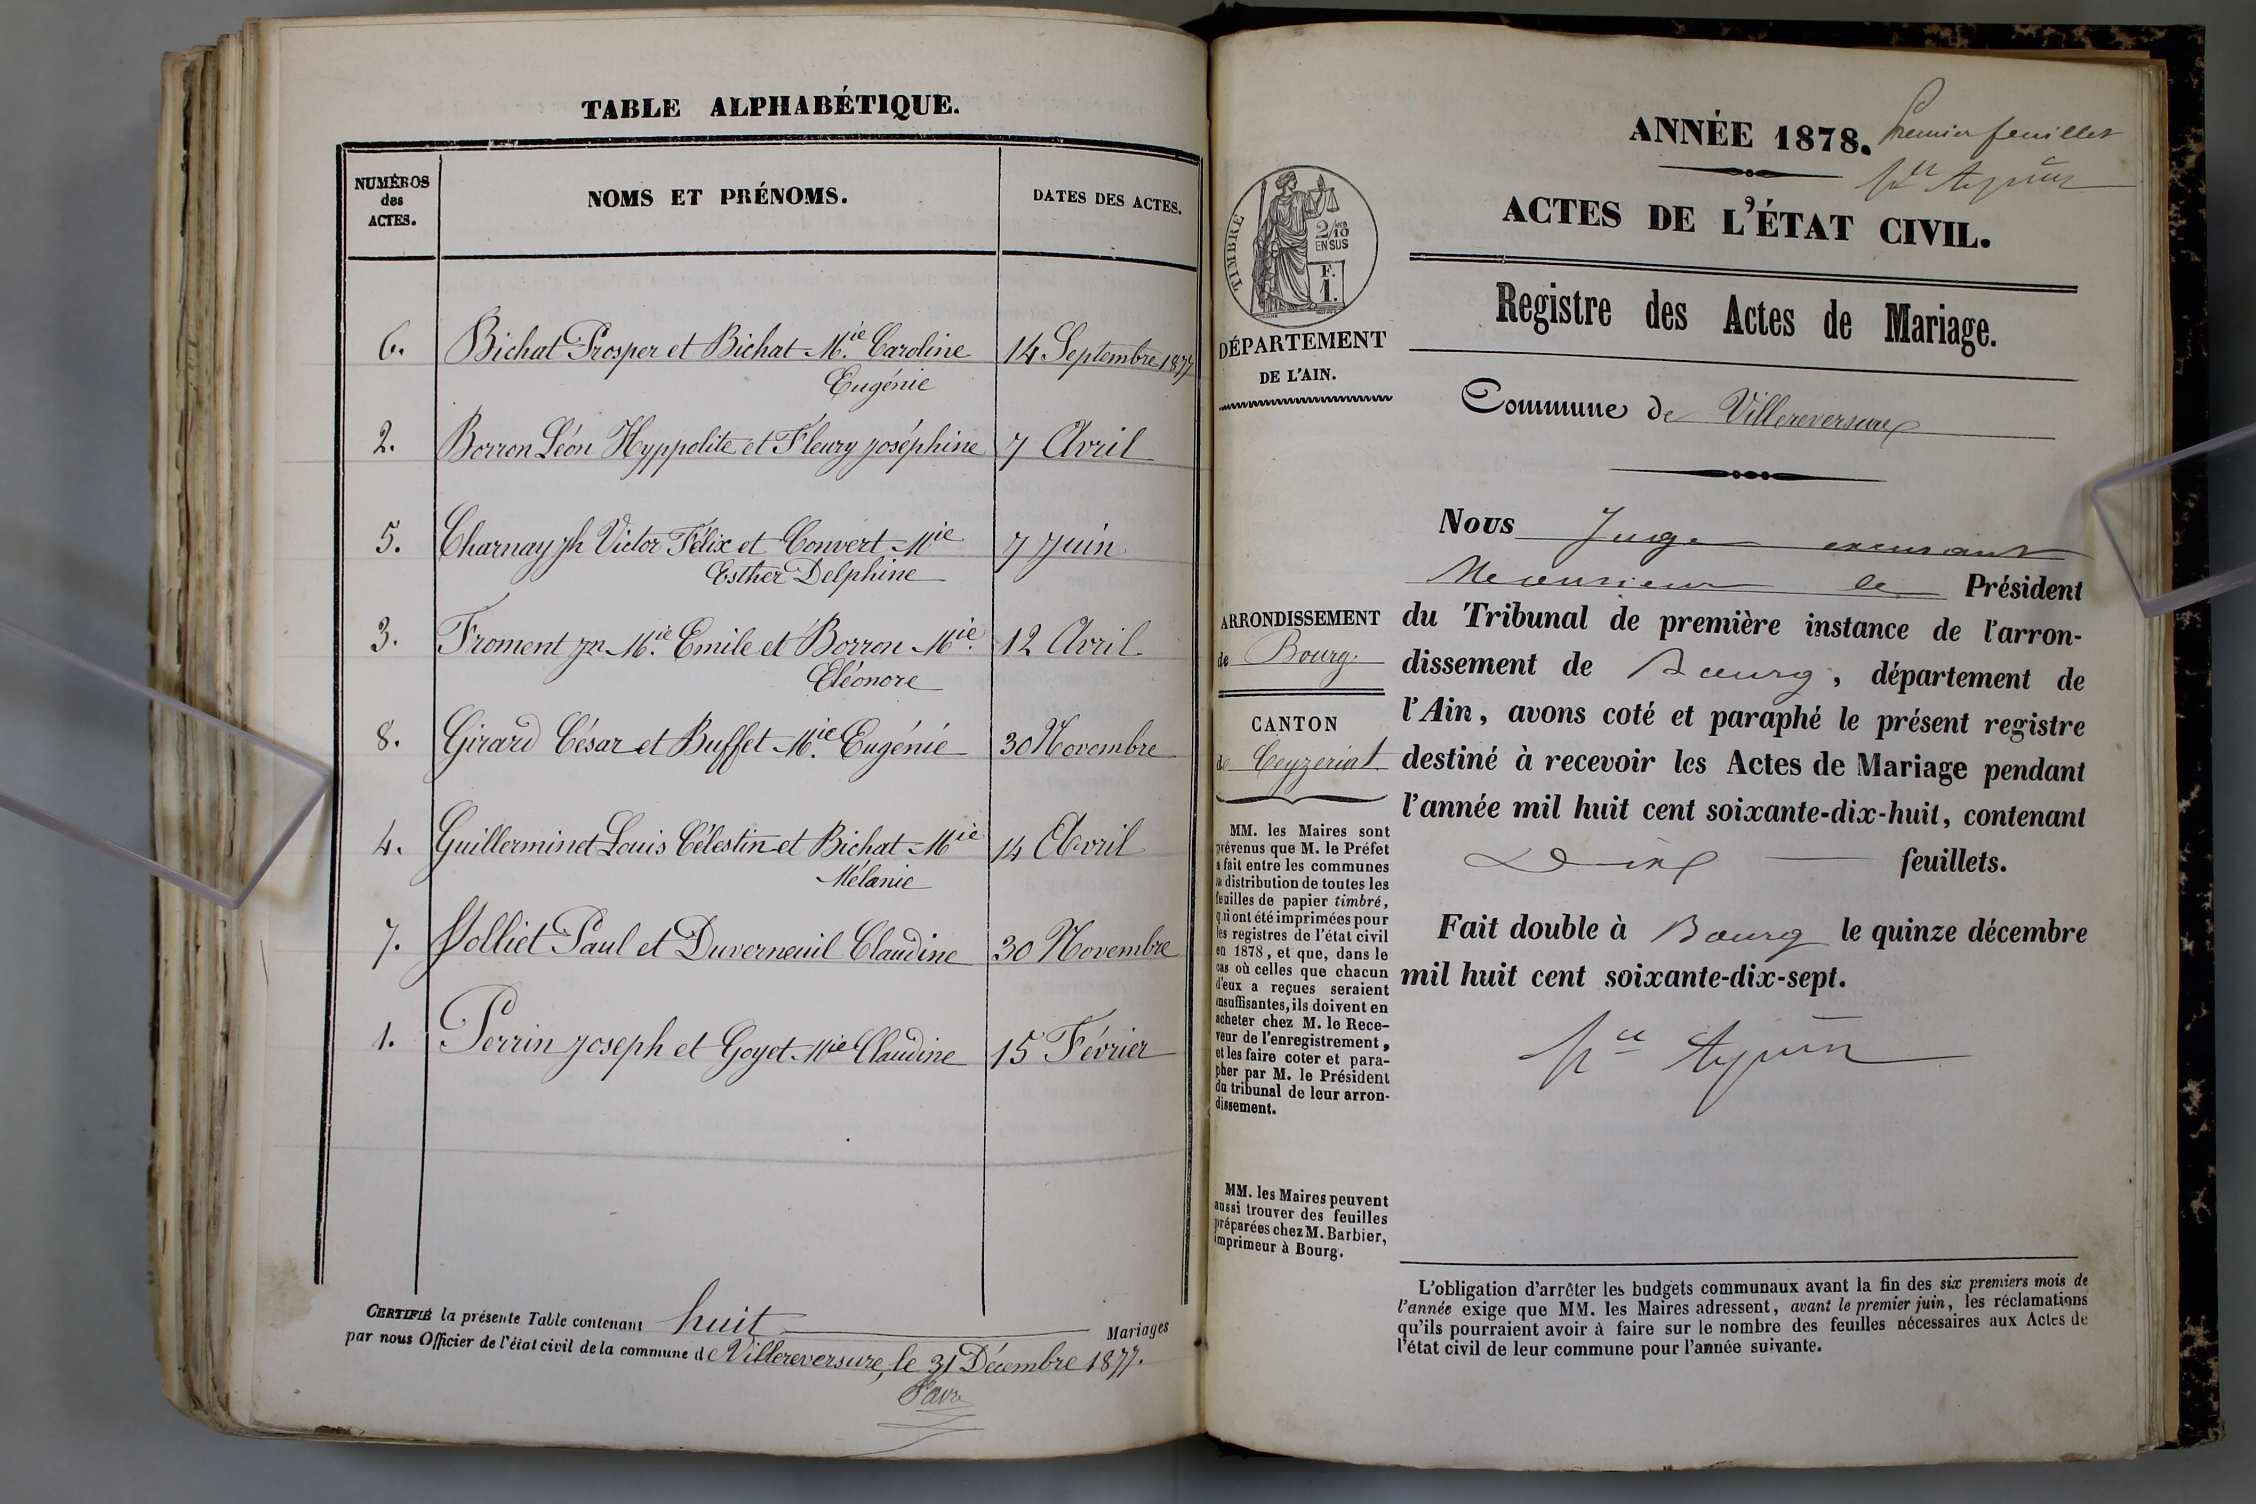 TABLE ALPHABÉTIQUE.
NUMÉROS
des
ACTES.
NOMS ET PRÉNOMS.
DATES DES ACTES.
6. Bichat Prosper et Bichat Mie. Caroline 14 Septembre 1877
Eugénie
2. Borron Léon Hyppolite et Fleury Joséphine 7 Avril
5. Charnay Jh Victor Félix et Convert Mie 7 Juin
Esther Delphine
3. Froment Jn Mie. Emile et Borron Mie. 12 Avril
Eléonore
8. Girard César et Buffet Mie. Eugénie 30 Novembre
4. Guillerminet Louis Célestin et Bichat Mie 14 Avril
Mélanie
7. Molliet Paul et Duverneuil Claudine 30 Novembre
1. Perrin Joseph et Goyet Mie Claudine 15 Février
CERTIFIÉ la présente Table contenant huit Mariages
par nous Officier de l'état civil de la commune de Villereversure, le 31 Décembre 1877.
ANNÉE 1878. Premier feuillet
ACTES DE L'ÉTAT CIVIL.
TIMBRE
2/10
EN SUS
F.
1.
Registre des Actes de Mariage.
DÉPARTEMENT
DE L'AIN.
Commune de Villereversure
Nous Juge
le Président
du Tribunal de première instance de l'arron-
dissement de Bourg, département de
l'Ain, avons coté et paraphé le présent registre
destiné à recevoir les Actes de Mariage pendant
l'année mil huit cent soixante-dix-huit, contenant
feuillets.
Fait double à Bourg le quinze décembre
mil huit cent soixante-dix-sept.
ARRONDISSEMENT
de Bourg.
CANTON
de Ceyzeriat
MM. les Maires sont
prévenus que M. le Préfet
a fait entre les communes
la distribution de toutes les
feuilles de papier timbré,
qui ont été imprimées pour
les registres de l'état civil
en 1878, et que, dans le
cas où celles que chacun
d'eux a reçues seraient
insuffisantes, ils doivent en
acheter chez M. le Rece-
veur de l'enregistrement,
et les faire coter et para-
pher par M. le Président
du tribunal de leur arron-
dissement.
MM. les Maires peuvent
aussi trouver des feuilles
préparées chez M. Barbier,
imprimeur à Bourg.
L'obligation d'arrêter les budgets communaux avant la fin des six premiers mois de
l'année exige que MM. les Maires adressent, avant le premier juin, les réclamations
qu'ils pourraient avoir à faire sur le nombre des feuilles nécessaires aux Actes de
l'état civil de leur commune pour l'année suivante.